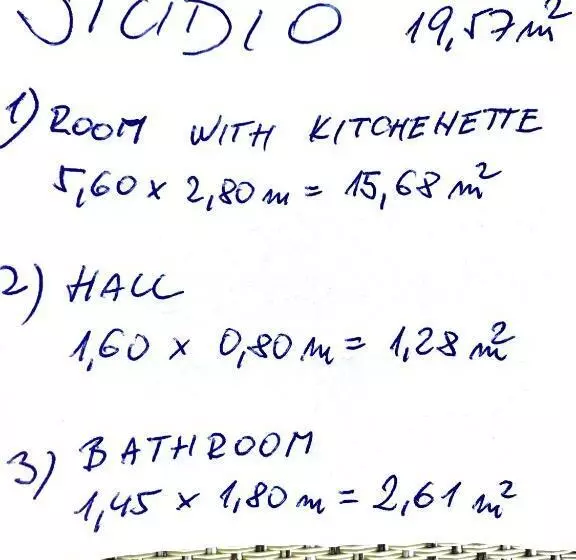 STUDIO 19,57 m²
1) ROOM WITH KITCHENETTE
5,60 x 2,80 m = 15,68 m²
2) HALL
1,60 x 0,80 m = 1,28 m²
3) BATHROOM
1,45 x 1,80 m = 2,61 m²